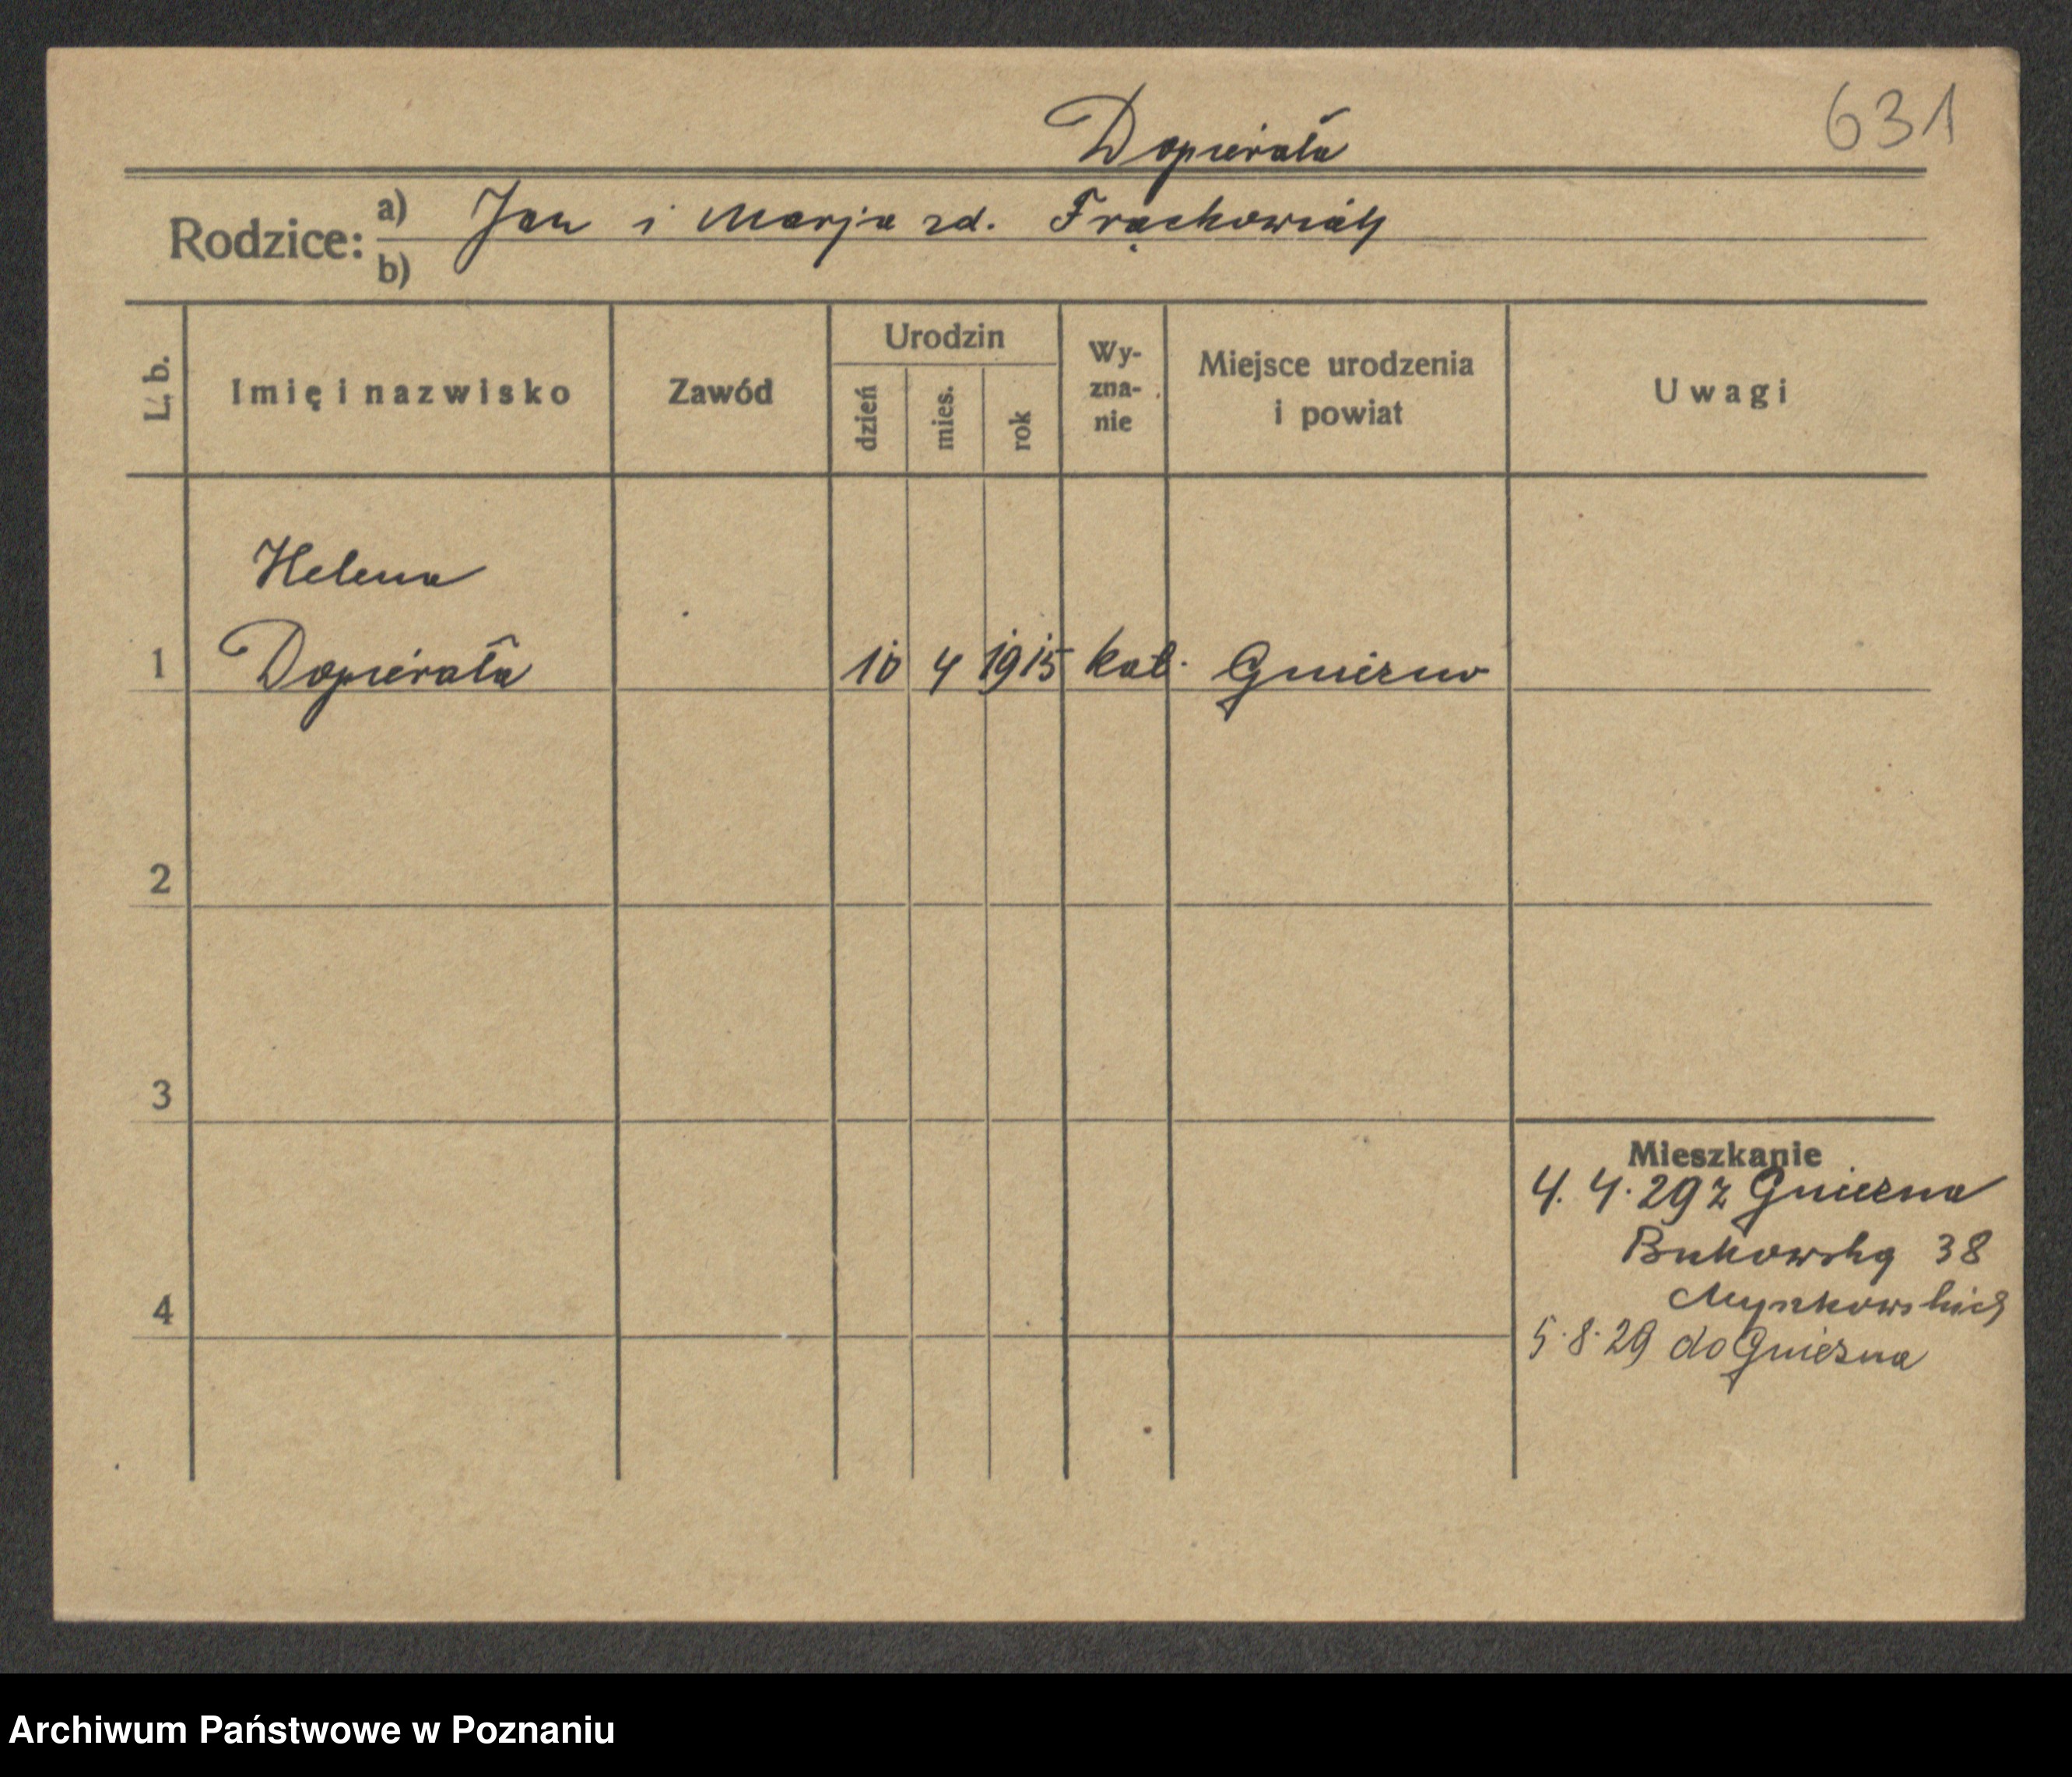 631
Dopierała
Rodzice: a) Jan i Marja zd. Frąckowiak
b)
L. b.
Imię i nazwisko
Zawód
Urodzin
dzień
mies.
rok
Wy-
zna-
nie
Miejsce urodzenia
i powiat
Uwagi
Helena
1 Dopierała 10 4 1915 kat. Gniezno
2
3
Mieszkanie
4. 4. 29 z Gniezna
Bukowska 38
4
5.8.29 do Gniezna
Archiwum Państwowe w Poznaniu